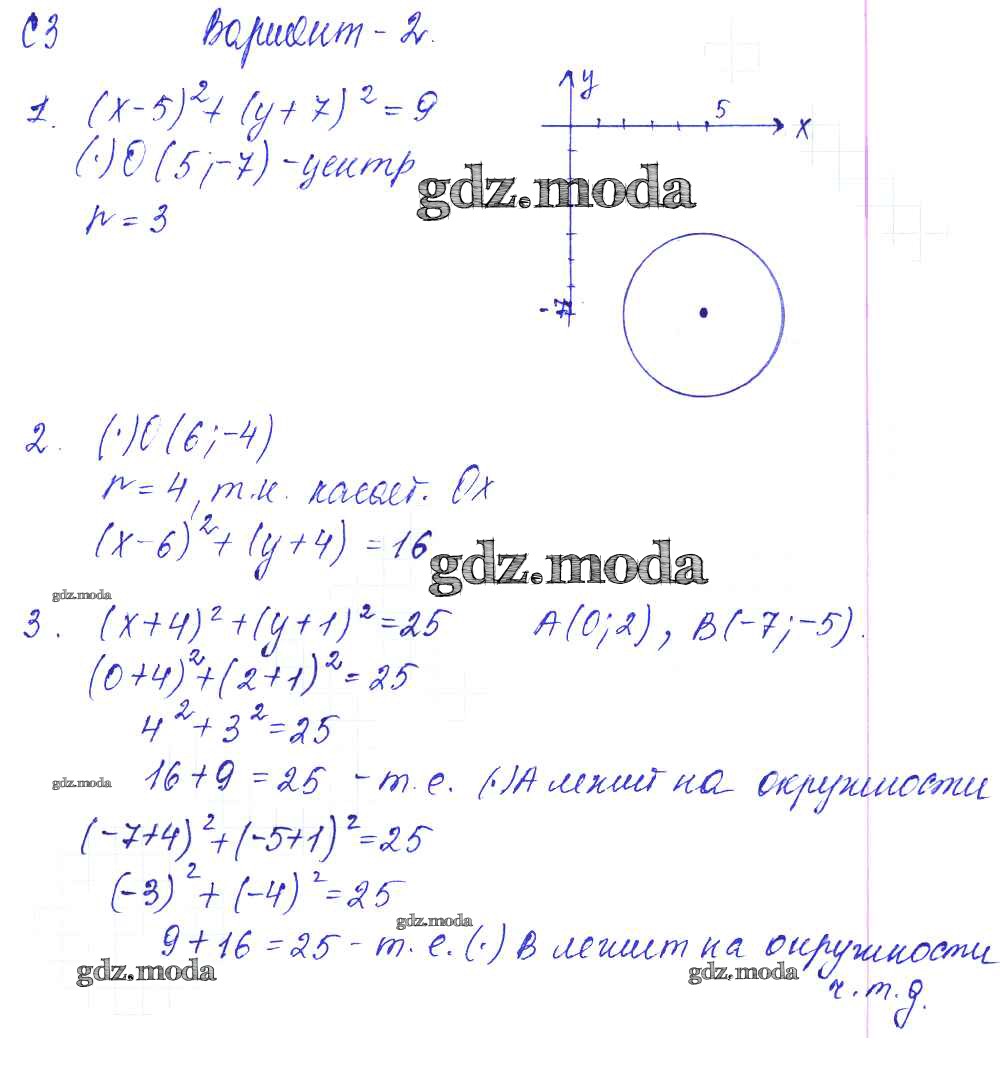 С3 Вариант - 2.
1. (x-5)² + (y+7)² = 9
(·) O (5; -7) - центр
r = 3
y
5
x
-7
gdz.moda
2. (·) O (6; -4)
r = 4, т.к. касает. Ox
(x-6)² + (y+4) = 16
gdz.moda
gdz.moda
3. (x+4)² + (y+1)² = 25 A(0; 2), B(-7; -5).
(0+4)² + (2+1)² = 25
4² + 3² = 25
16 + 9 = 25 - т.е. (·) A лежит на окружности
gdz.moda
(-7+4)² + (-5+1)² = 25
(-3)² + (-4)² = 25
gdz.moda
9 + 16 = 25 - т.е. (·) B лежит на окружности
gdz.moda
gdz.moda
ч.т.д.